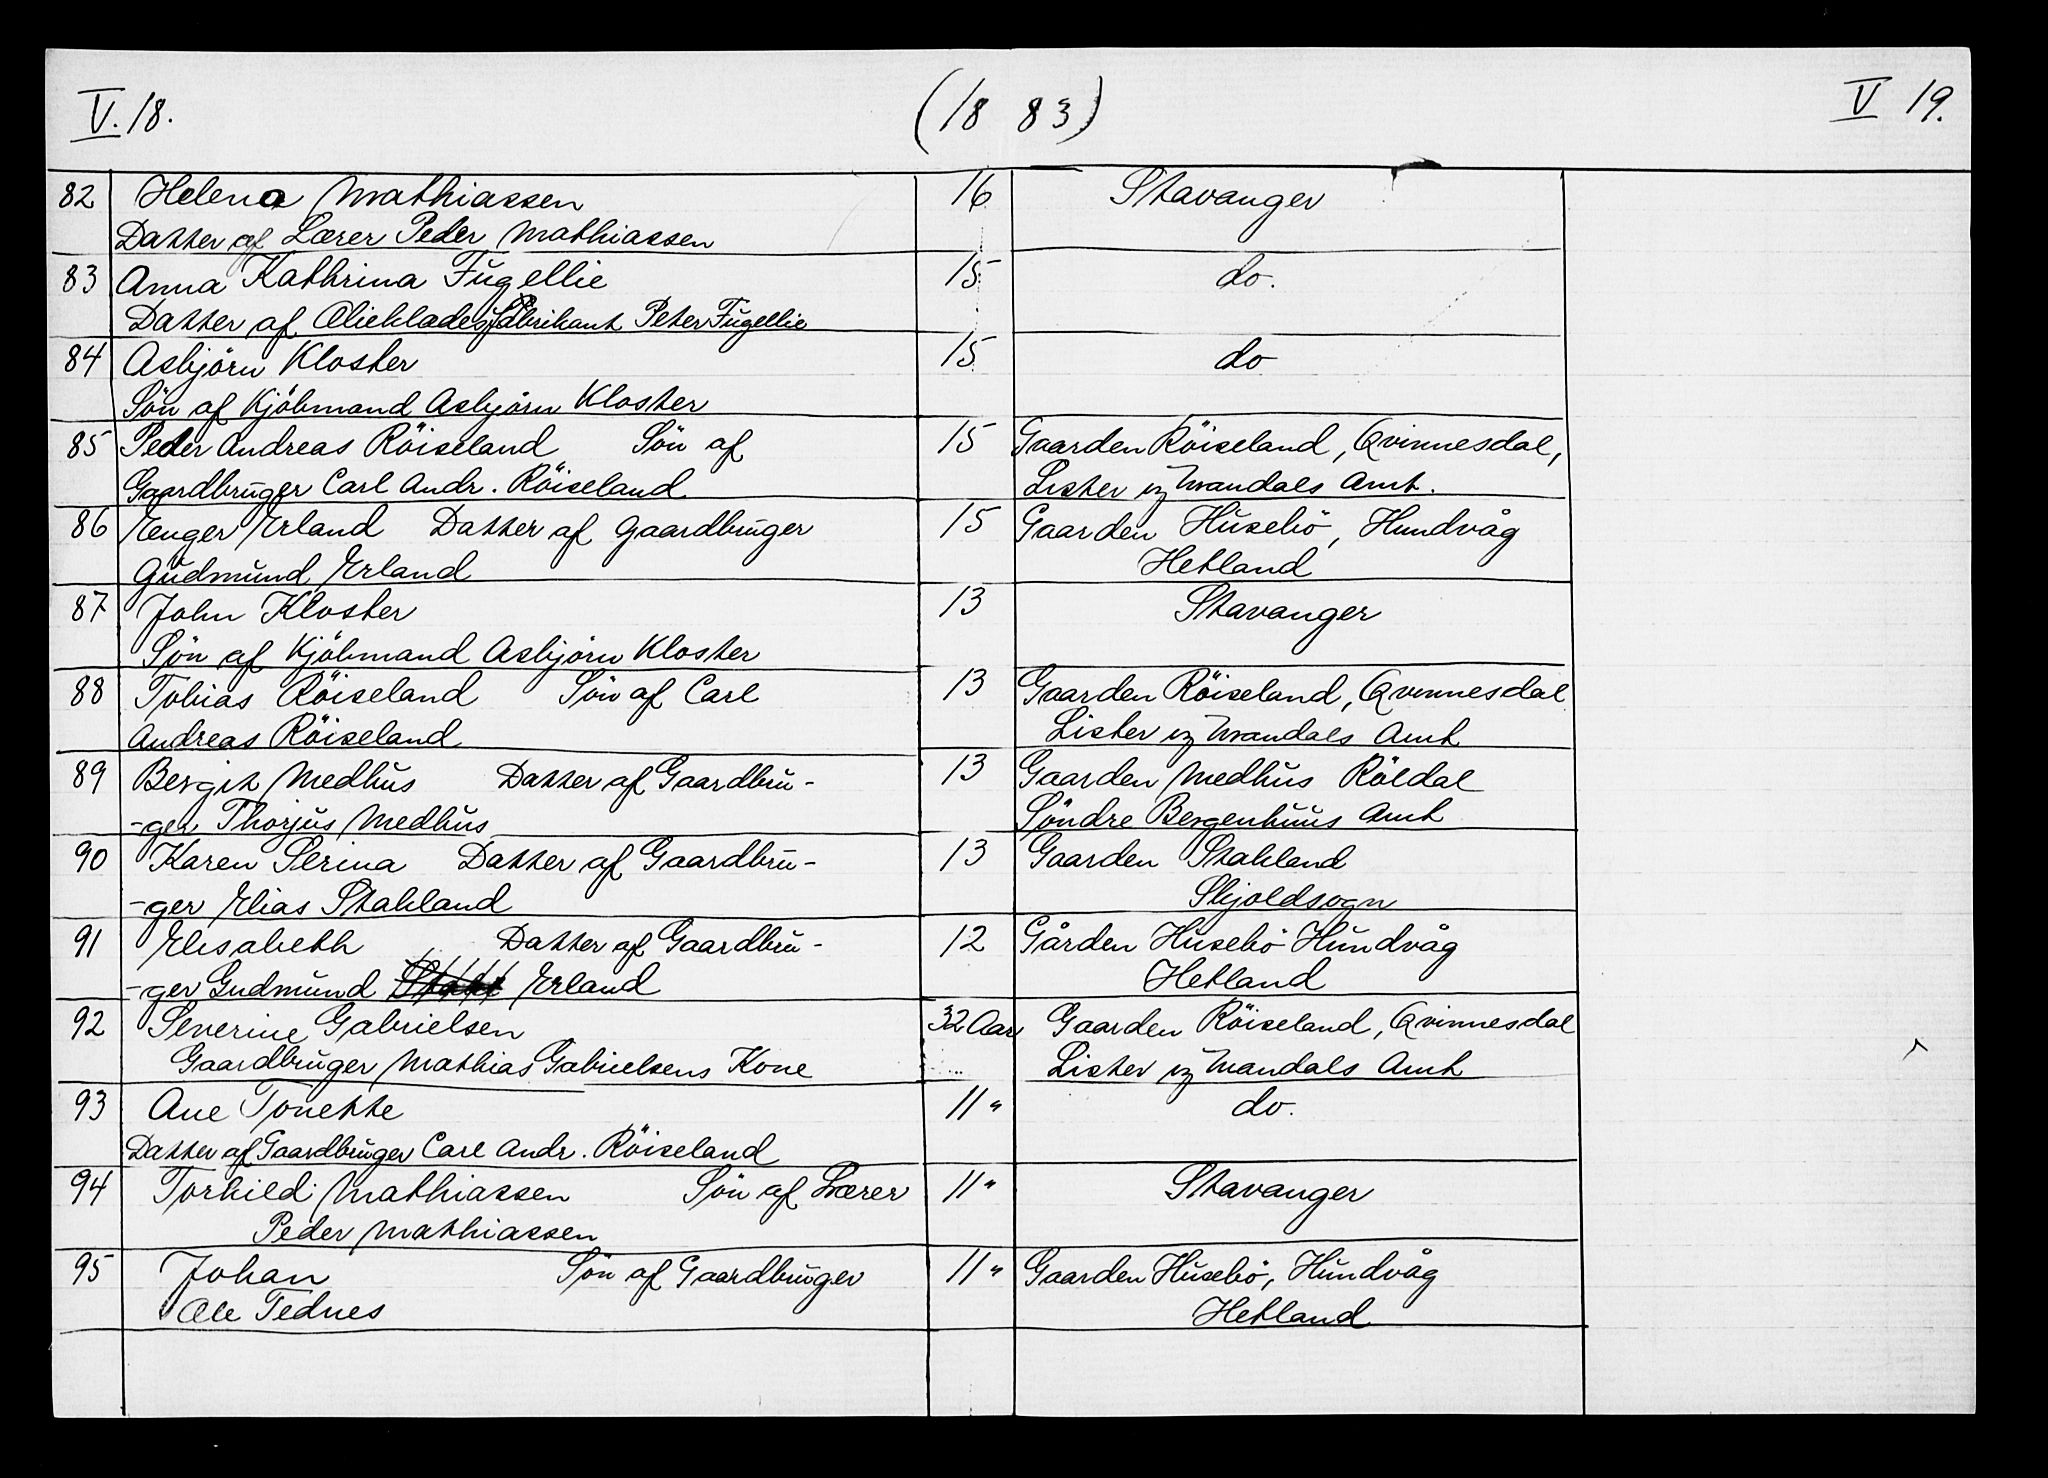 V. 18. (18 83) V 19.
82 Helena Mathiassen 16 Stavanger
Datter af Lærer Peder Mathiassen
83 Anna Kathrina Fugellie 15 do.
Datter af Olieklædesfabrikant Peter Fugellie
84 Asbjörn Kloster 15 do
Sön af Kjöbmand Asbjörn Kloster
85 Peder Andreas Röiseland Sön af 15 Gaarden Röiseland, Qvinnesdal,
Gaardbruger Carl Andr. Röiseland Lister og Mandals Amt.
86 Enger Erland Datter af Gaardbruger 15 Gaarden Husebö, Hundvåg
Gudmund Erland Hetland
87 John Kloster 13 Stavanger
Sön af Kjöbmand Asbjörn Kloster
88 Tobias Röiseland Sön af Carl 13 Gaarden Röiseland, Qvinnesdal
Andreas Röiseland Lister og Mandals Amt
89 Bergit Medhus Datter af Gaardbru- 13 Gaarden Medhus Röldal
-ger Thorjus Medhus Söndre Bergenhuus Amt
90 Karen Serina Datter af Gaardbru- 13 Gaarden Stakland
-ger Elias Stakland Skjoldsogn
91 Elisabeth Datter af Gaardbru- 12 Gården Husebö Hundvåg
-ger Gudmund Erland Hetland
92 Severine Gabrielsen 32 Aar Gaarden Röiseland, Qvinnesdal
Gaardbruger Mathias Gabrielsens Kone Lister og Mandals Amt
93 Ane Tonette 11 " do.
Datter af Gaardbruger Carl Andr. Röiseland
94 Torkild Mathiassen Sön af Lærer 11 " Stavanger
Peder Mathiassen
95 Johan Sön af Gaardbruger 11 " Gaarden Husebö, Hundvåg
Ole Tednes Hetland